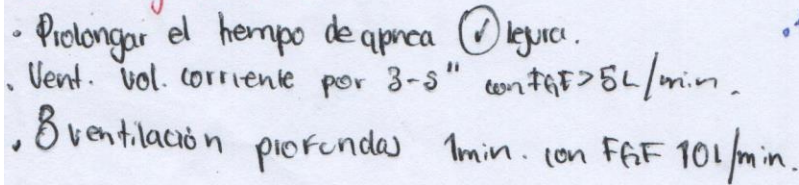 • Prolongar el tiempo de apnea ✓ segura.
• Vent. vol. corriente por 3-5" con FGF > 5L/min.
• 8 ventilación profundas 1min. con FGF 10L/min.